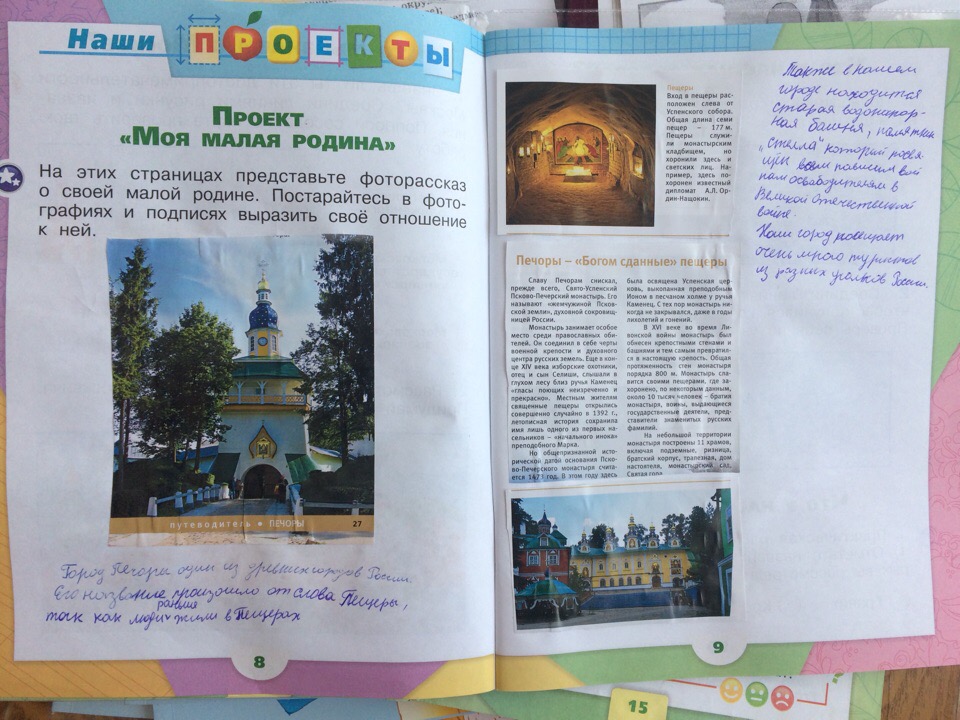 Наши ПРОЕКТЫ
ПРОЕКТ
«МОЯ МАЛАЯ РОДИНА»
На этих страницах представьте фоторассказ
о своей малой родине. Постарайтесь в фото-
графиях и подписях выразить своё отношение
к ней.
путеводитель • ПЕЧОРЫ 27
Город Печоры один из древних городов России.
Его название произошло от слова Пещеры,
раньше
так как люди жили в Пещерах
8
Пещеры
Вход в пещеры рас-
положен слева от
Успенского собора.
Общая длина семи
пещер — 177 м.
Пещеры служи-
ли монастырским
кладбищем, но
хоронили здесь и
светских лиц. На-
пример, здесь по-
хоронен известный
дипломат А.Л. Ор-
дин-Нащокин.
Печоры – «Богом сданные» пещеры
Славу Печорам снискал,
прежде всего, Свято-Успенский
Псково-Печерский монастырь. Его
называют «жемчужиной Псков-
ской земли», духовной сокровищ-
ницей России.
Монастырь занимает особое
место среди православных оби-
телей. Он соединил в себе черты
военной крепости и духовного
центра русских земель. Еще в кон-
це XIV века изборские охотники,
отец и сын Селиши, слышали в
глухом лесу близ ручья Каменец
«гласы поющих неизреченно и
прекрасно». Местным жителям
священные пещеры открылись
совершенно случайно в 1392 г.,
летописная история сохранила
имя лишь одного из первых на-
сельников – «начального инока»
преподобного Марка.
Но общепризнанной исто-
рической датой основания Пско-
во-Печерского монастыря счита-
ется 1473 год. В этом году здесь
была освящена Успенская цер-
ковь, выкопанная преподобным
Ионом в песчаном холме у ручья
Каменец. С тех пор монастырь ни-
когда не закрывался, даже в годы
лихолетий и гонений.
В XVI веке во время Ли-
вонской войны монастырь был
обнесен крепостными стенами и
башнями и тем самым превратил-
ся в настоящую крепость. Общая
протяженность стен монастыря
порядка 800 м. Монастырь сла-
вится своими пещерами, где за-
хоронено, по некоторым данным,
около 10 тысяч человек – братия
монастыря, воины, выдающиеся
государственные деятели, пред-
ставители знаменитых русских
фамилий.
На небольшой территории
монастыря построены 11 храмов,
включая подземные, ризница,
братский корпус, трапезная, дом
настоятеля, монастырский сад,
Святая гора.
9
Также в нашем
городе находится
старая водонапор-
ная башня, памятник
„стелла" который посвя-
щён всем
нам освободителям в
Великой Отечественной
войне.
Наш город посещает
очень много туристов
из разных уголков России.
15